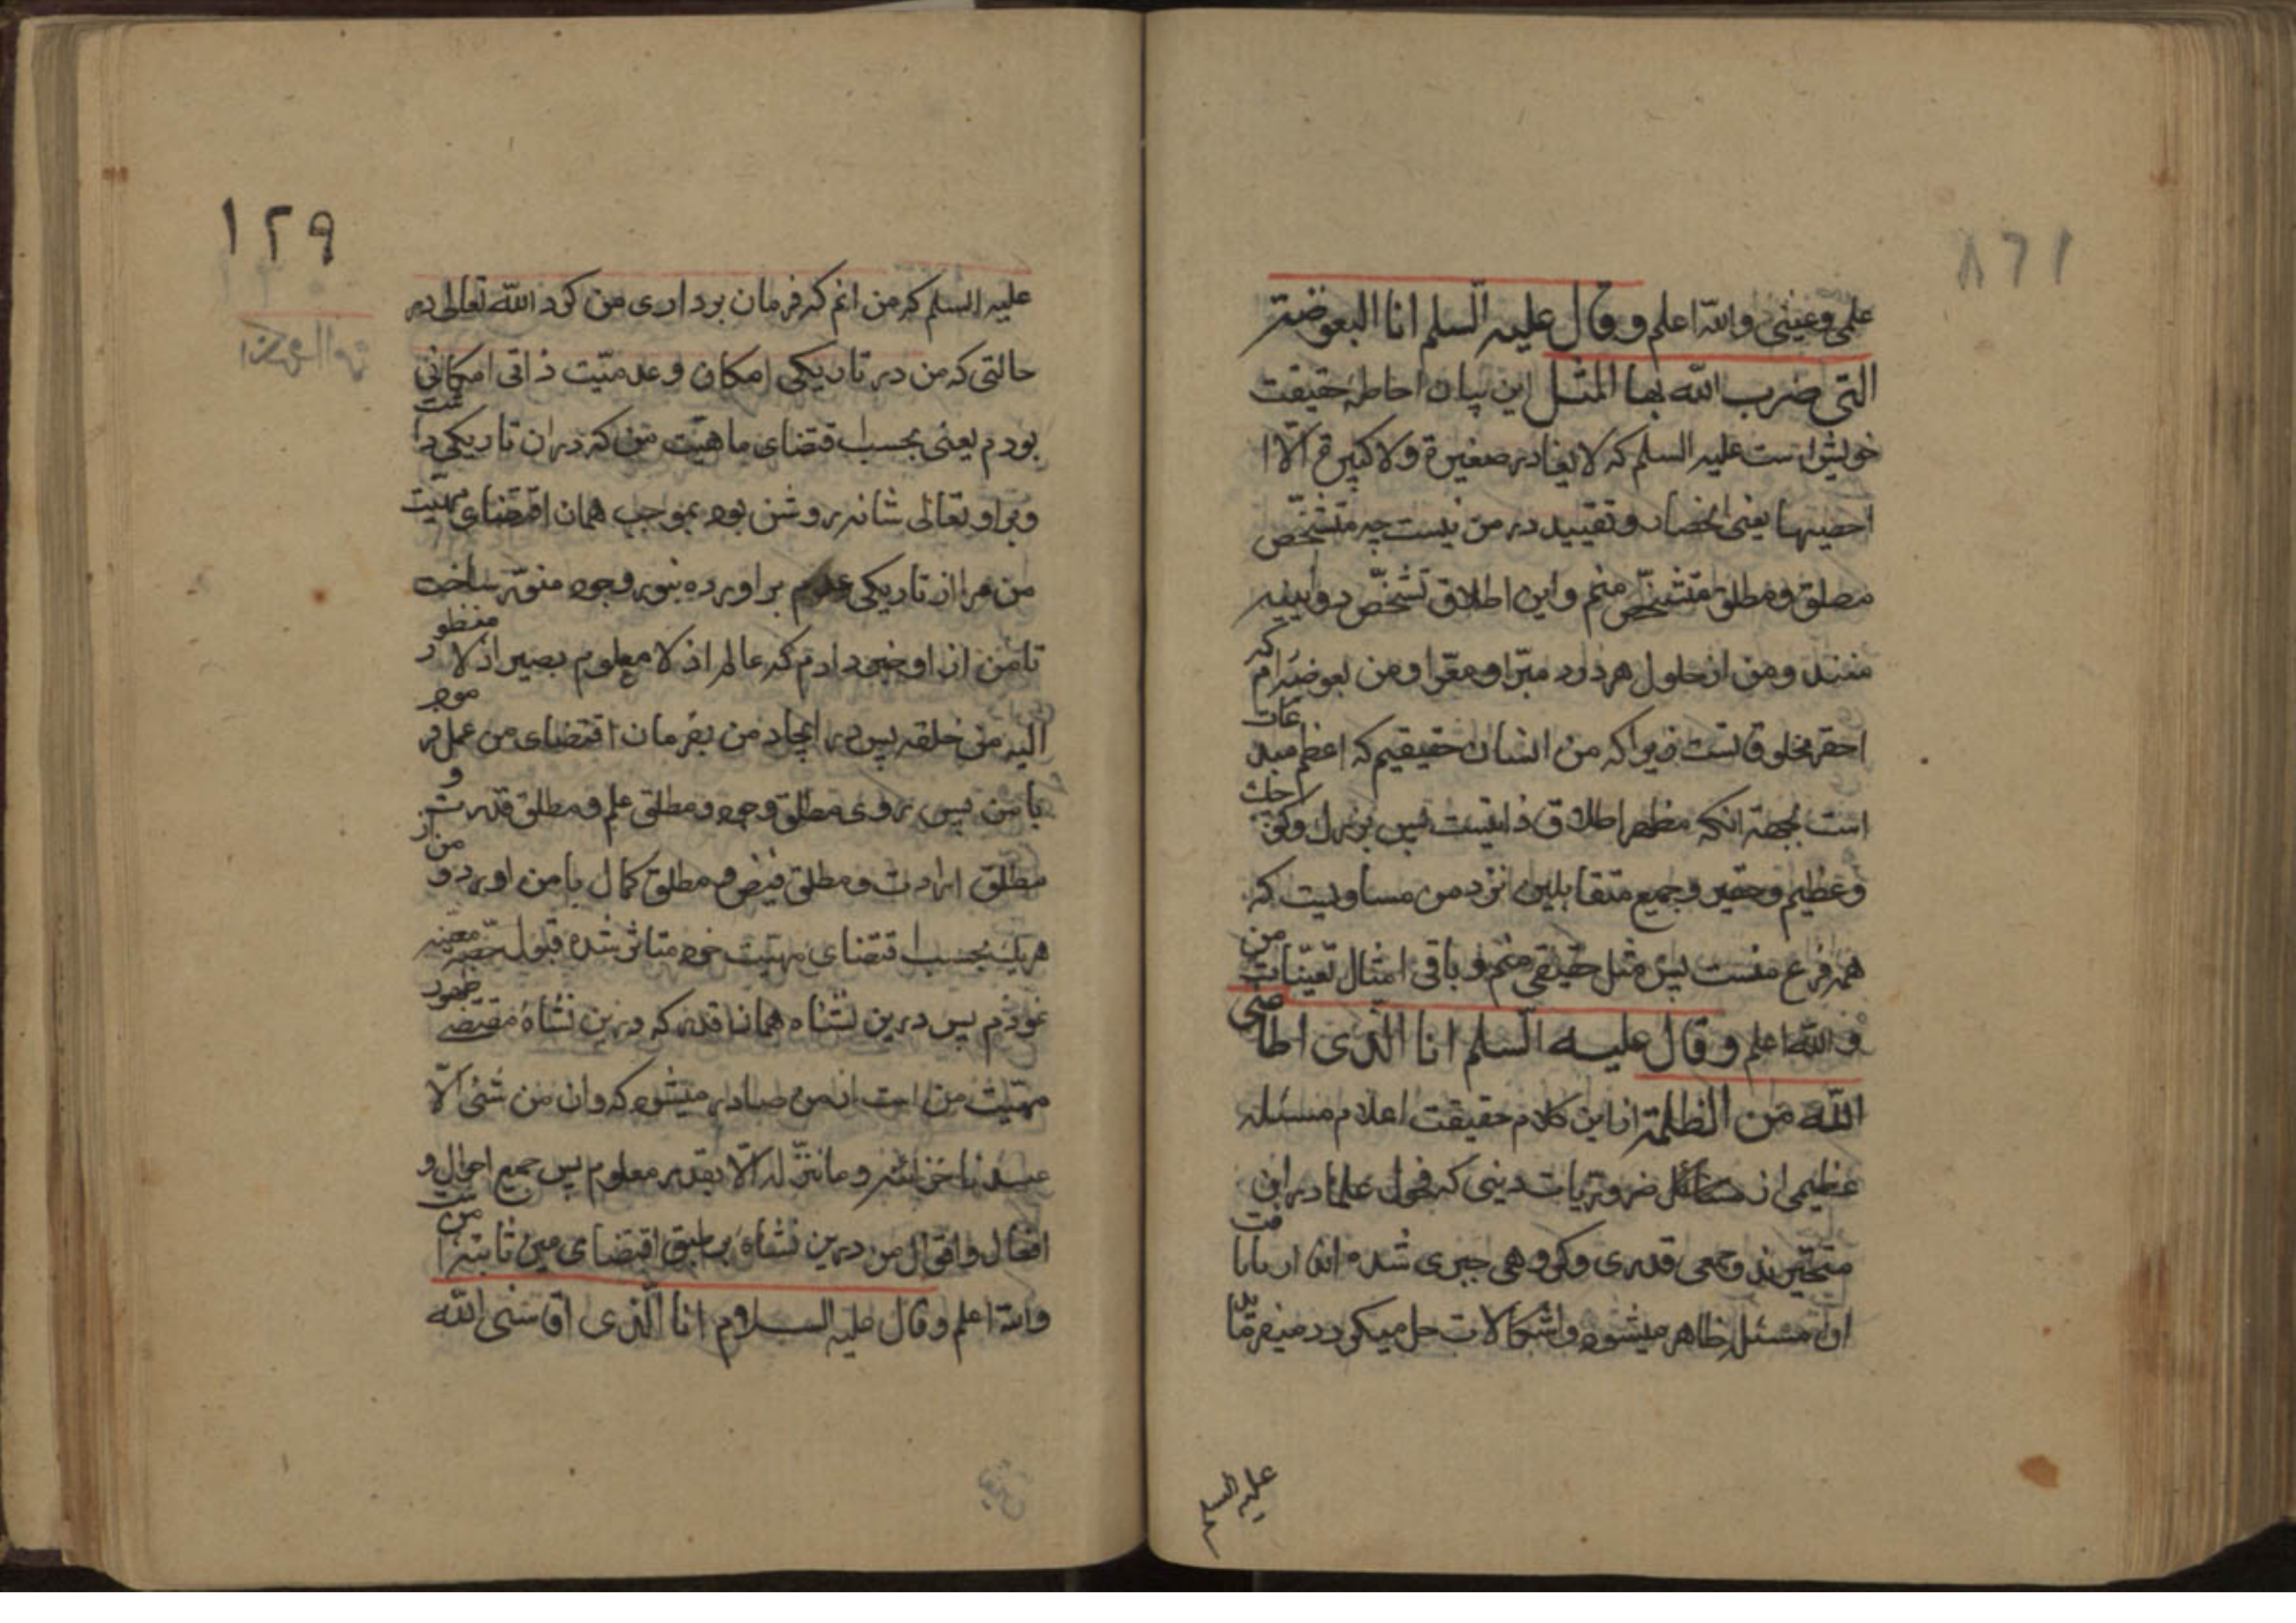 علمی و عینی والله اعلم و قال علیه السلم انا البعوضة
التی ضرب الله بها المثل این بیان احاطهٔ حقیقت
خویش است علیه السلم که لا یغادر صغیرة ولا کبیرة الّا
احصیها یعنی انحصار و تقیید در من نیست چه متشخّص
مطلق و مطلق متشخّص منم و این اطلاق تشخّص دو آیینه
منند و من از حلول هر دو مبرّا و معرّا و من بعوضه‌ام که
احقر مخلوقاتست زیرا که من انسان حقیقیم که اعظم مبدعات
است بجهة انکه مظهر اطلاق ذاتیست پس بزرگ و کوچک
و عظیم و حقیر و جمیع متقابلین نزد من مساویست که
همه فرع منست پس مثل حقیقی منم و باقی امثال تعیّنات من
والله اعلم و قال علیه السلم انا الّذی اطاعنی
اللّه من الظلمة از این کلام حقیقت اعلام مسئله
عظیمی از مسائل ضروریات دینی که فحول علما در این
متحیّرند و جمعی قدری و گروهی جبری شده اند
ان مسئله ظاهر میشود و اشکالات حل میکردد میفرماید
علیه السلم
۱۲۹
علیه السلم که من انم که فرمان برداری من کرد اللّه تعالی در
حالتی که من در تاریکی امکان و عدمیّت ذاتی امکانی
بودم یعنی بحسب اقتضای ماهیّت من که در ان تاریکی داشت
و بر او تعالی شانه روشن بود بموجب همان اقتضای مهیّت
من مرا از تاریکی عدم براورده بنور وجود منوّر ساخت
تا من از او خبر دادم که عالم اذ لا معلوم بصیر اذ لا منظور
الیه من خلقه پس در ایجاد من بفرمان اقتضای من عمل فرمود
با من پس از روی مطلق وجود و مطلق علم و مطلق قدرت و
مطلق ارادت و مطلق فیض و مطلق کمال با من اورد و من از
هریک بحسب اقتضای مهیّت خود متاثر شده قبول حصّه معیّنه
نمودم پس درین نشاه همانقدر که درین نشاهٔ مقتضی ظهور
مهیّت من است از من صادر میشود که و ان من شئ الّا
عندنا خزائنه و ما ننزّله الّا بقدر معلوم پس جمیع احوال و
افعال و اقوال من درین نشاه بر طبق اقتضای عین ثابتهٔ من است
والله اعلم و قال علیه السلام انا الّذی اقامنی اللّه